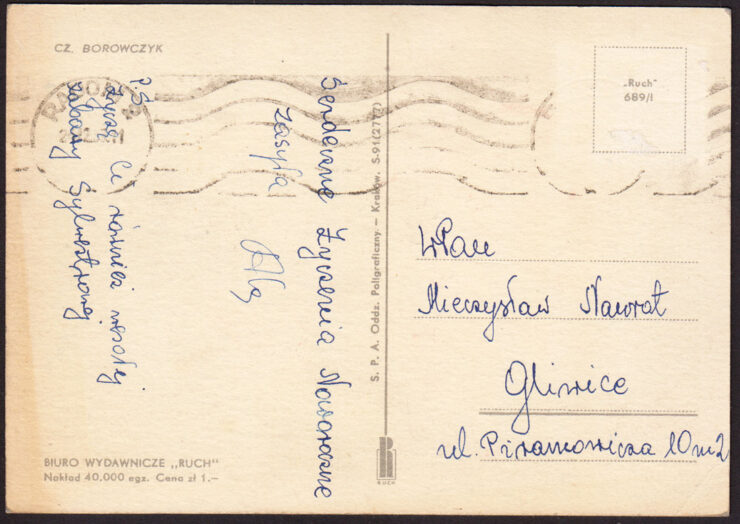 CZ. BOROWCZYK
RADOM 2
Serdeczne Życzenia Noworoczne
zasyła
Ala
PS
Życzę Ci również wesołej
zabawy Sylwestrowej
BIURO WYDAWNICZE „RUCH"
Nakład 40.000 egz. Cena zł 1.—
S. P. A. Oddz. Poligraficzny — Kraków. S-91(2777)
RUCH
„Ruch"
689/I
WPan
Mieczysław Nawrot
Gliwice
ul. Piramowicza 10 m 2